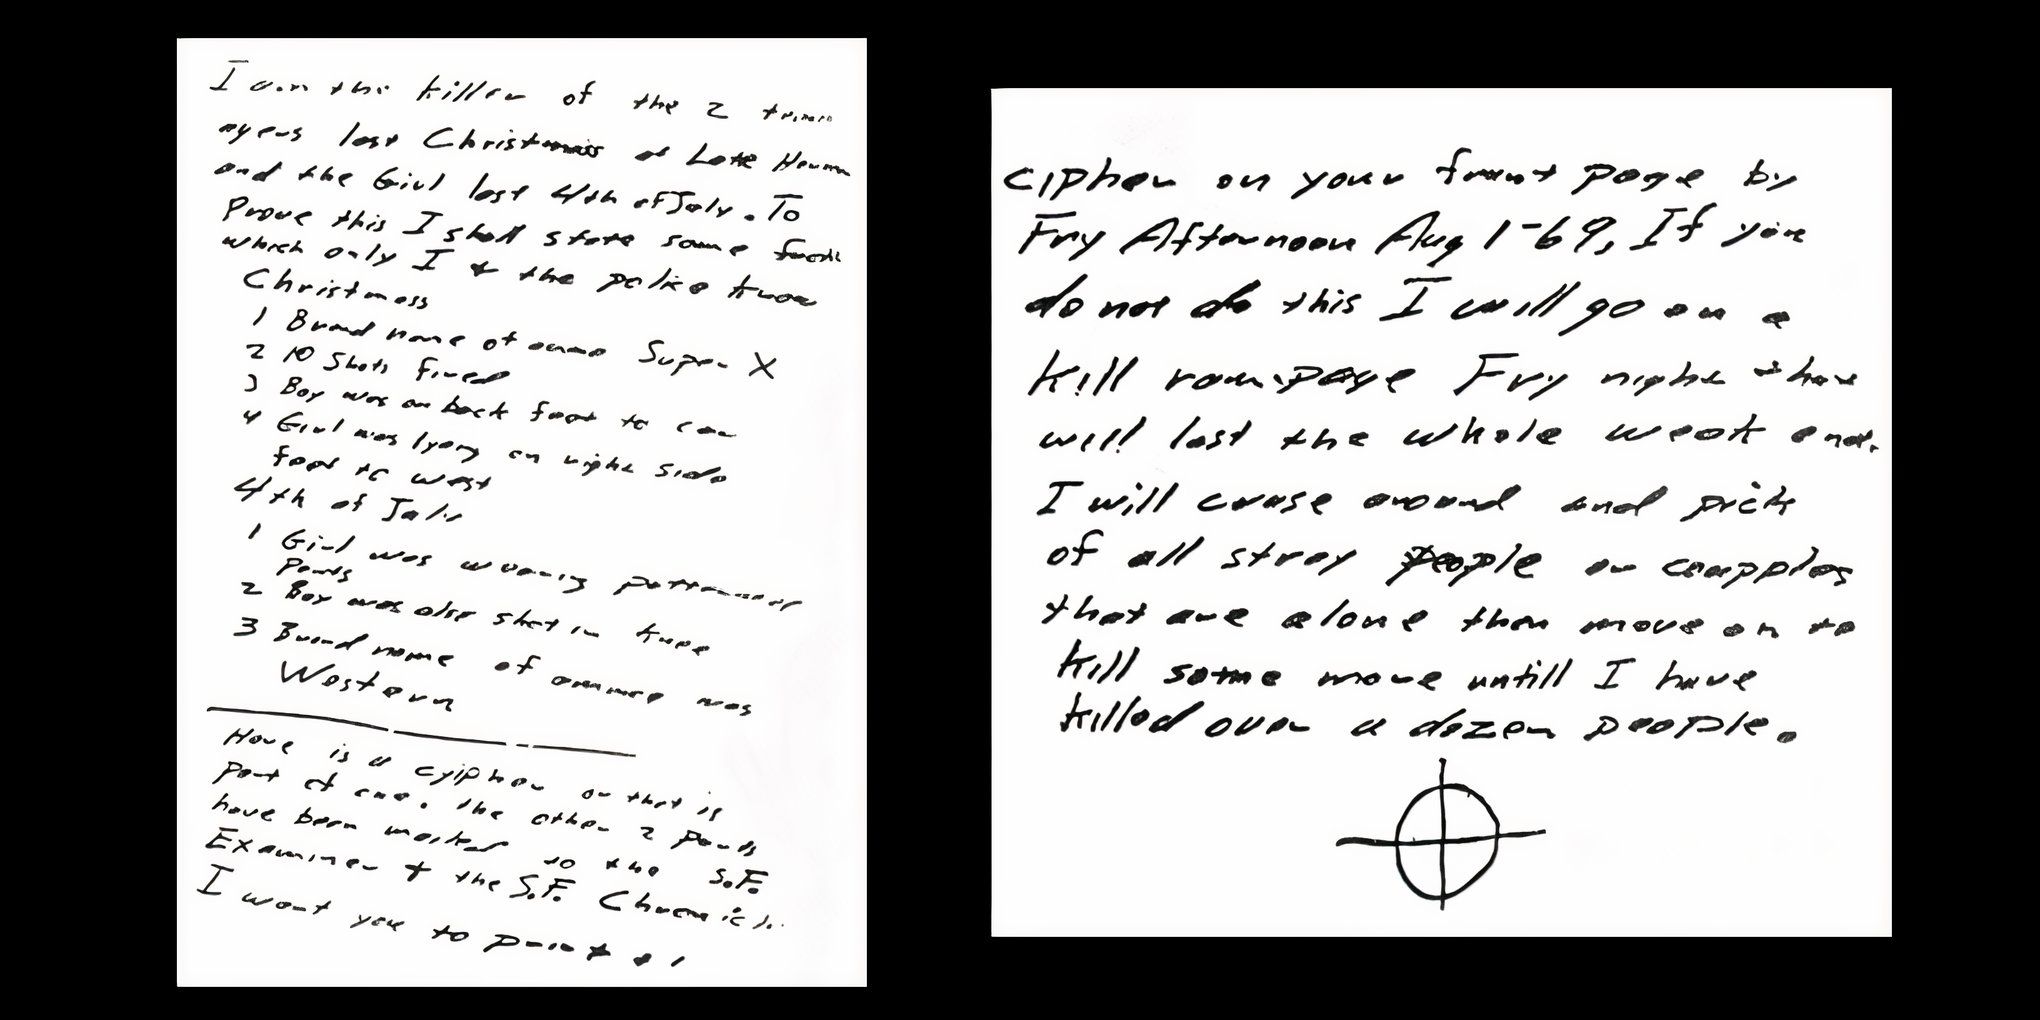 I am the killer of the 2 teen
agers last Christmass at Lake Herman
and the Girl last 4th of July. To
Prove this I shall state some facts
which only I + the police know
Christmass
1 Brand name of ammo Super X
2 10 Shots fired
3 Boy was on back feet to car
4 Girl was lyeing on right side
feet to west
4th of July
1 Girl was wearing patterned
pants
2 Boy was also shot in knee
3 Brand name of ammo was
Western
Here is a cyipher or that is
part of one. the other 2 parts
have been mailed to the S.F.
Examiner + the S.F. Chronicle
I want you to print
cipher on your front page by
Fry Afternoon Aug 1-69, If you
do not do this I will go on a
kill rampage Fry night that
will last the whole week end.
I will cruse around and pick
of all stray people or coupples
that are alone then move on to
kill some more untill I have
killed over a dozen people.